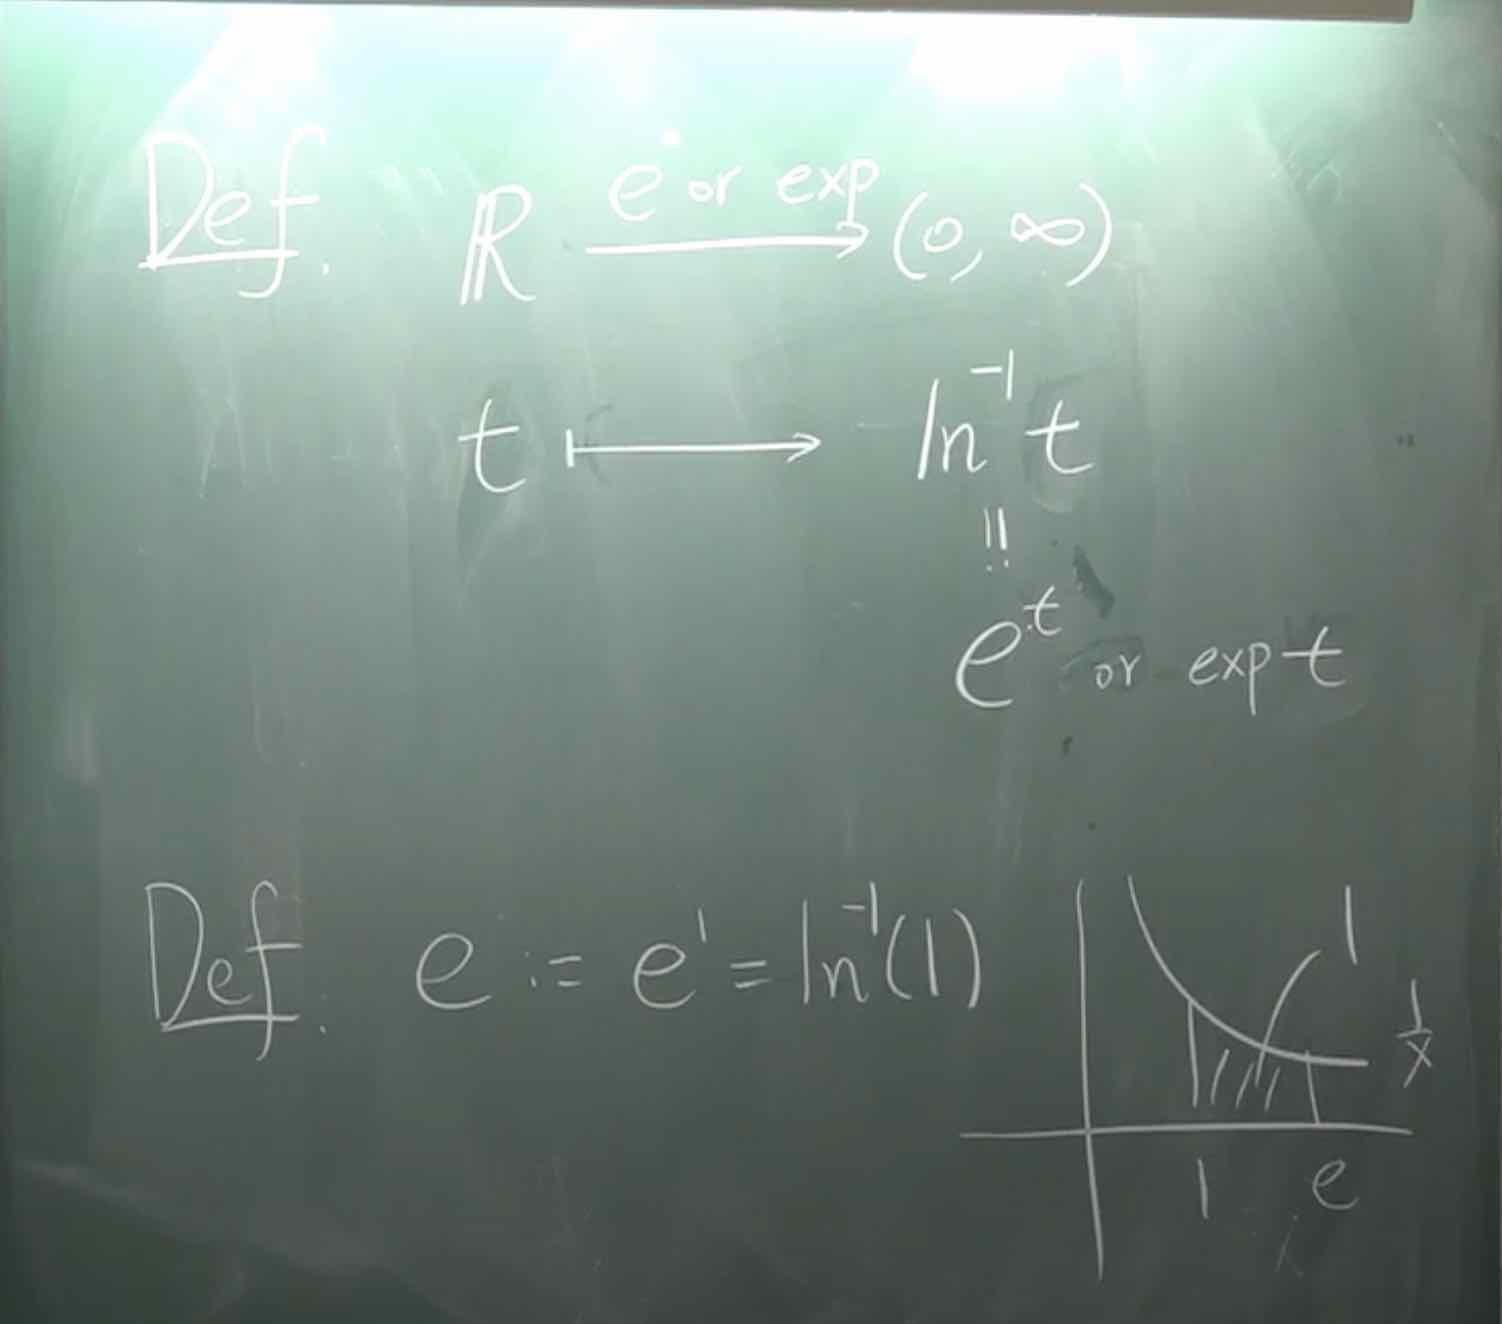 Def. ℝ —e˙ or exp→ (0, ∞)
t ⟼ ln⁻¹ t
‖
eᵗ or exp t
Def. e := e¹ = ln⁻¹(1)
1
1/x
1 e